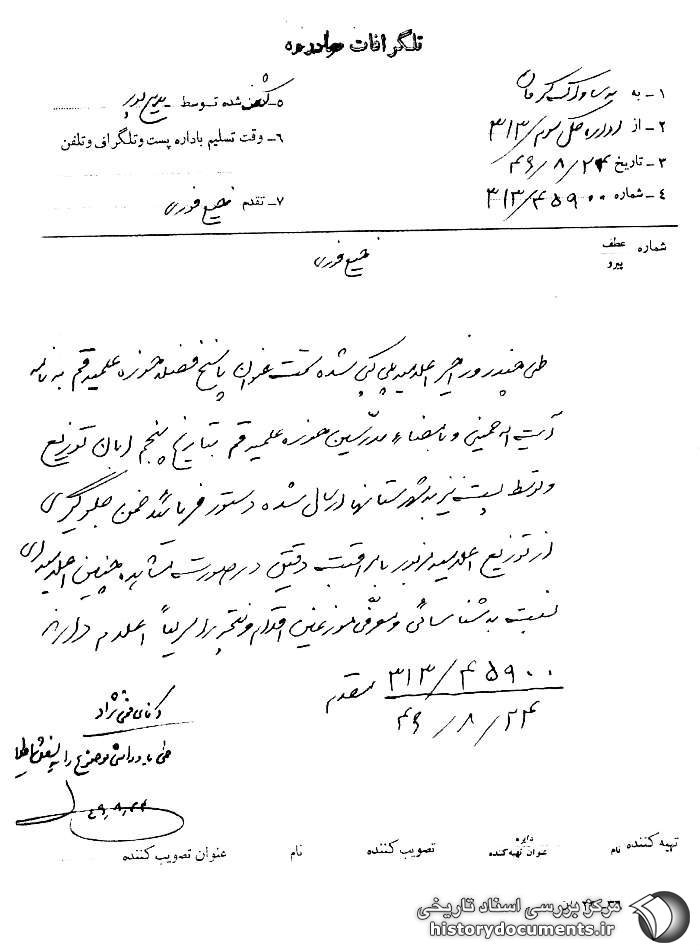 تلگرافات صادره
۱- به ساواک کرمان
۲- از اداره کل سوم ۳۱۳
۳- تاریخ ۴۹/۸/۲۴
۴- شماره ۳۱۳/۴۵۹۰۰
۵- کشف شده توسط
۶- وقت تسلیم باداره پست و تلگراف و تلفن
۷- تقدم خیلی فوری
شماره عطف پیرو
خیلی فوری
طی چند روز اخیر اعلامیه پلی کپی شده تحت عنوان پاسخ فضلاء حوزه علمیه قم به نامه
آیت اله خمینی و بامضاء مدرسین حوزه علمیه قم بتاریخ پنجم ابان توزیع
و توسط پست نیز به شهرستانها ارسال شده دستور فرمائید ضمن جلوگیری
از توزیع اعلامیه مزبور با مراقبت دقیق در صورت مشاهده چنین اعلامیه ای
نسبت به شناسائی و معرفی موزعین اقدام و نتیجه را سریعاً اعلام دارند
۳۱۳/۴۵۹۰۰ مقدم
۴۹/۸/۲۴
آقای
طی موضوع را
۴۹,۸,۲۴
تهیه کننده نام دایره عنوان تهیه کننده تصویب کننده نام عنوان تصویب کننده
مرکز بررسی اسناد تاریخی
historydocuments.ir